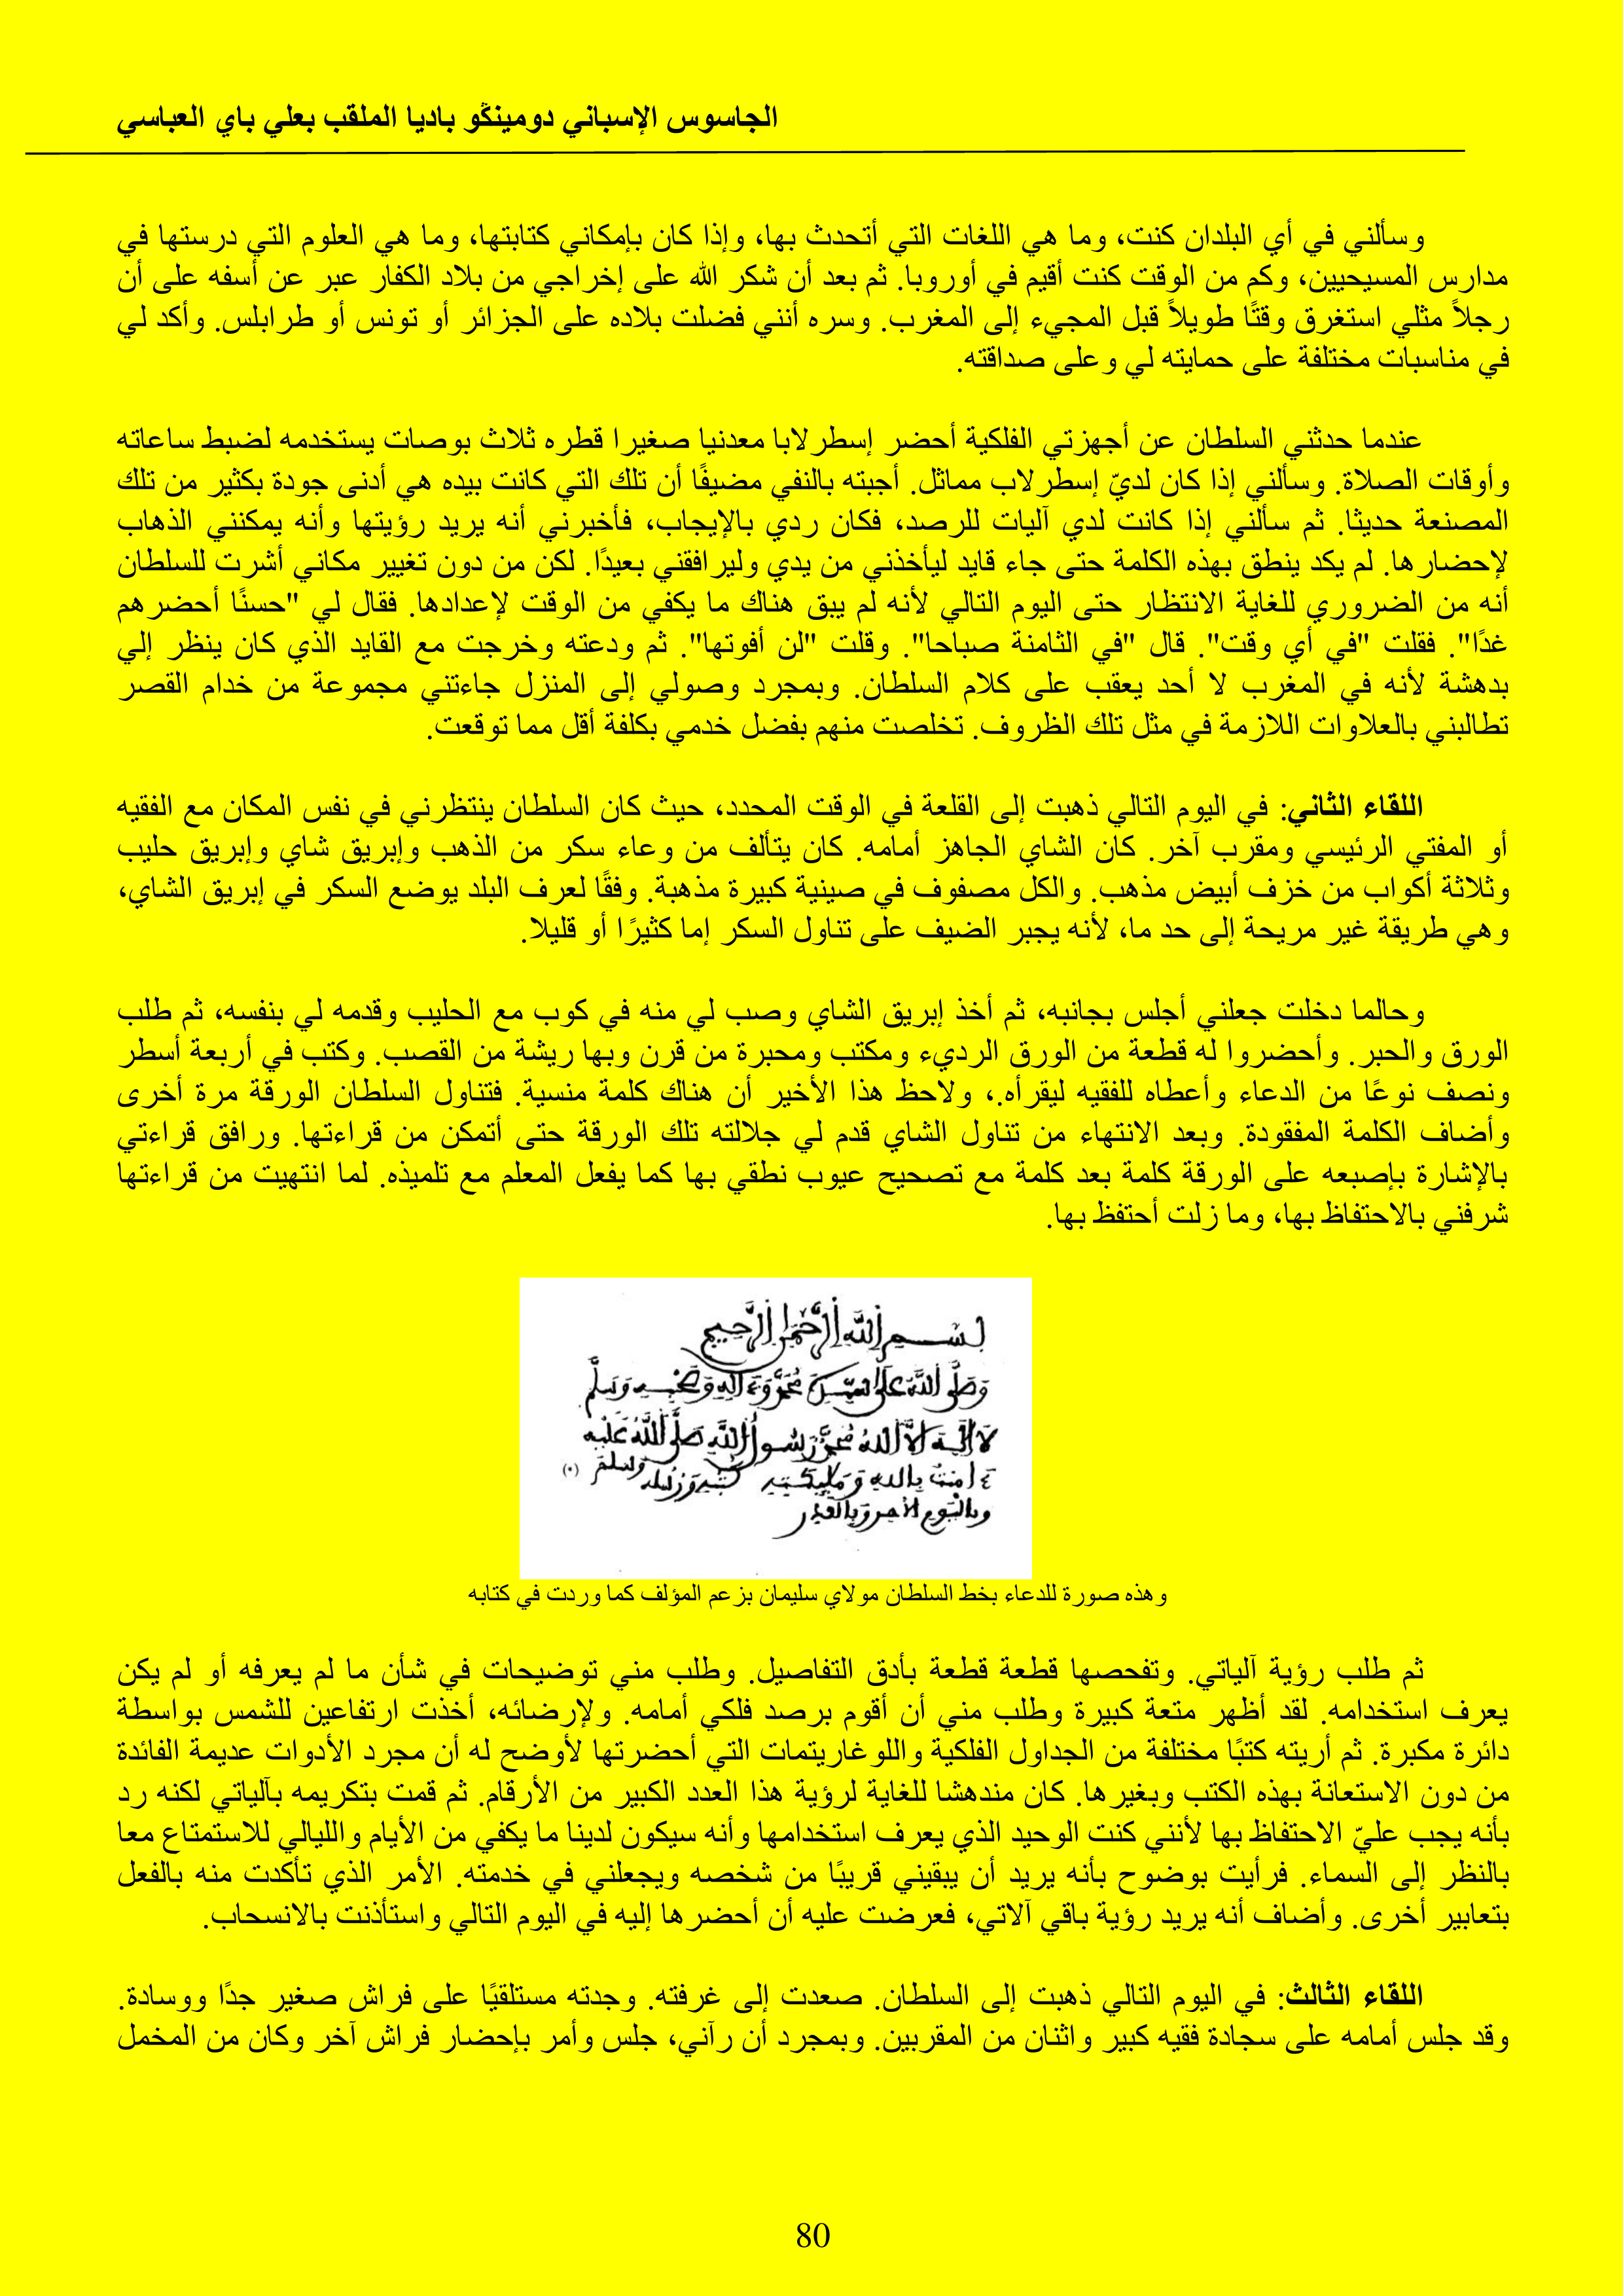 الجاسوس الإسباني دومينڭو باديا الملقب بعلي باي العباسي
وسألني في أي البلدان كنت، وما هي اللغات التي أتحدث بها، وإذا كان بإمكاني كتابتها، وما هي العلوم التي درستها في
مدارس المسيحيين، وكم من الوقت كنت أقيم في أوروبا. ثم بعد أن شكر الله على إخراجي من بلاد الكفار عبر عن أسفه على أن
رجلاً مثلي استغرق وقتًا طويلاً قبل المجيء إلى المغرب. وسره أنني فضلت بلاده على الجزائر أو تونس أو طرابلس. وأكد لي
في مناسبات مختلفة على حمايته لي وعلى صداقته.
عندما حدثني السلطان عن أجهزتي الفلكية أحضر إسطرلابا معدنيا صغيرا قطره ثلاث بوصات يستخدمه لضبط ساعاته
وأوقات الصلاة. وسألني إذا كان لديّ إسطرلاب مماثل. أجبته بالنفي مضيفًا أن تلك التي كانت بيده هي أدنى جودة بكثير من تلك
المصنعة حديثا. ثم سألني إذا كانت لدي آليات للرصد، فكان ردي بالإيجاب، فأخبرني أنه يريد رؤيتها وأنه يمكنني الذهاب
لإحضارها. لم يكد ينطق بهذه الكلمة حتى جاء قايد ليأخذني من يدي وليرافقني بعيدًا. لكن من دون تغيير مكاني أشرت للسلطان
أنه من الضروري للغاية الانتظار حتى اليوم التالي لأنه لم يبق هناك ما يكفي من الوقت لإعدادها. فقال لي "حسنًا أحضرهم
غدًا". فقلت "في أي وقت". قال "في الثامنة صباحا". وقلت "لن أفوتها". ثم ودعته وخرجت مع القايد الذي كان ينظر إلي
بدهشة لأنه في المغرب لا أحد يعقب على كلام السلطان. وبمجرد وصولي إلى المنزل جاءتني مجموعة من خدام القصر
تطالبني بالعلاوات اللازمة في مثل تلك الظروف. تخلصت منهم بفضل خدمي بكلفة أقل مما توقعت.
اللقاء الثاني: في اليوم التالي ذهبت إلى القلعة في الوقت المحدد، حيث كان السلطان ينتظرني في نفس المكان مع الفقيه
أو المفتي الرئيسي ومقرب آخر. كان الشاي الجاهز أمامه. كان يتألف من وعاء سكر من الذهب وإبريق شاي وإبريق حليب
وثلاثة أكواب من خزف أبيض مذهب. والكل مصفوف في صينية كبيرة مذهبة. وفقًا لعرف البلد يوضع السكر في إبريق الشاي،
وهي طريقة غير مريحة إلى حد ما، لأنه يجبر الضيف على تناول السكر إما كثيرًا أو قليلا.
وحالما دخلت جعلني أجلس بجانبه، ثم أخذ إبريق الشاي وصب لي منه في كوب مع الحليب وقدمه لي بنفسه، ثم طلب
الورق والحبر. وأحضروا له قطعة من الورق الرديء ومكتب ومحبرة من قرن وبها ريشة من القصب. وكتب في أربعة أسطر
ونصف نوعًا من الدعاء وأعطاه للفقيه ليقرأه.، ولاحظ هذا الأخير أن هناك كلمة منسية. فتناول السلطان الورقة مرة أخرى
وأضاف الكلمة المفقودة. وبعد الانتهاء من تناول الشاي قدم لي جلالته تلك الورقة حتى أتمكن من قراءتها. ورافق قراءتي
بالإشارة بإصبعه على الورقة كلمة بعد كلمة مع تصحيح عيوب نطقي بها كما يفعل المعلم مع تلميذه. لما انتهيت من قراءتها
شرفني بالاحتفاظ بها، وما زلت أحتفظ بها.
بسم الله الرحمن الرحيم
وصلى الله على محمد وءاله وصحبه وسلم
لا إله إلا الله محمد رسول الله صلى الله عليه
ءامنت بالله وملئكته وكتبه ورسله وسلم
وباليوم الآخر وبالقدر
وهذه صورة للدعاء بخط السلطان مولاي سليمان بزعم المؤلف كما وردت في كتابه
ثم طلب رؤية آلياتي. وتفحصها قطعة قطعة بأدق التفاصيل. وطلب مني توضيحات في شأن ما لم يعرفه أو لم يكن
يعرف استخدامه. لقد أظهر متعة كبيرة وطلب مني أن أقوم برصد فلكي أمامه. ولإرضائه، أخذت ارتفاعين للشمس بواسطة
دائرة مكبرة. ثم أريته كتبًا مختلفة من الجداول الفلكية واللوغاريتمات التي أحضرتها لأوضح له أن مجرد الأدوات عديمة الفائدة
من دون الاستعانة بهذه الكتب وبغيرها. كان مندهشا للغاية لرؤية هذا العدد الكبير من الأرقام. ثم قمت بتكريمه بآلياتي لكنه رد
بأنه يجب عليّ الاحتفاظ بها لأنني كنت الوحيد الذي يعرف استخدامها وأنه سيكون لدينا ما يكفي من الأيام والليالي للاستمتاع معا
بالنظر إلى السماء. فرأيت بوضوح بأنه يريد أن يبقيني قريبًا من شخصه ويجعلني في خدمته. الأمر الذي تأكدت منه بالفعل
بتعابير أخرى. وأضاف أنه يريد رؤية باقي آلاتي، فعرضت عليه أن أحضرها إليه في اليوم التالي واستأذنت بالانسحاب.
اللقاء الثالث: في اليوم التالي ذهبت إلى السلطان. صعدت إلى غرفته. وجدته مستلقيًا على فراش صغير جدًا ووسادة.
وقد جلس أمامه على سجادة فقيه كبير واثنان من المقربين. وبمجرد أن رآني، جلس وأمر بإحضار فراش آخر وكان من المخمل
80